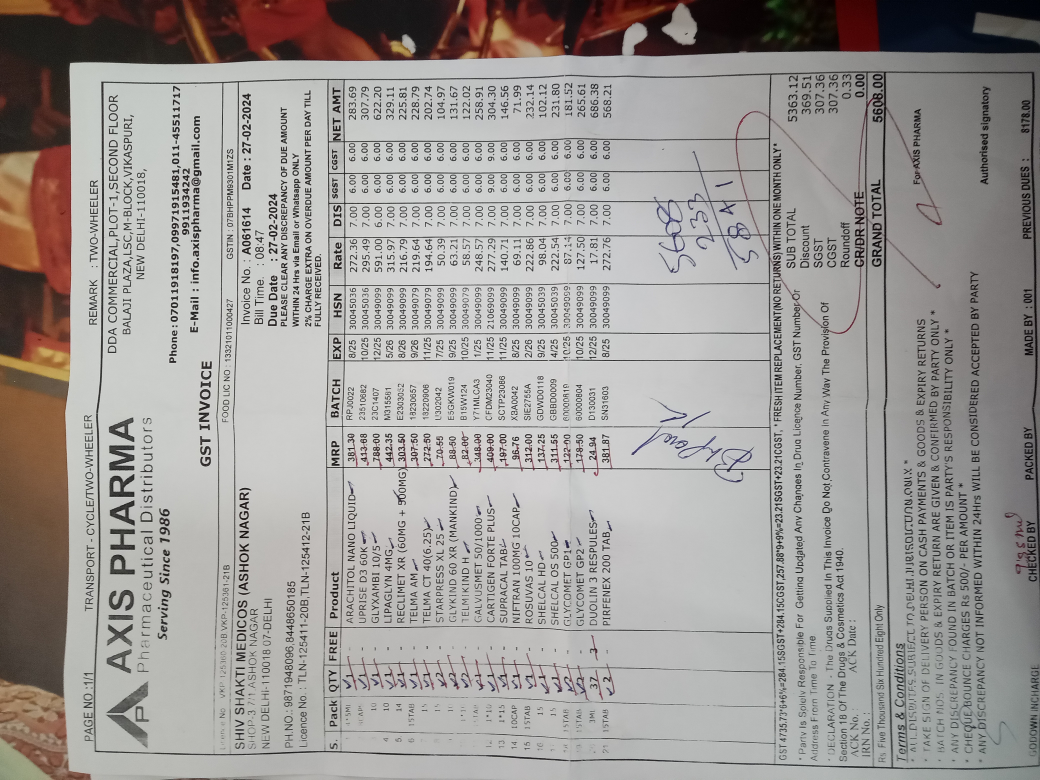 PAGE NO.:1/1 TRANSPORT - CYCLE/TWO-WHEELER REMARK : TWO-WHEELER
AXIS PHARMA
Pharmaceutical Distributors
Serving Since 1986
DDA COMMERCIAL, PLOT-1,SECOND FLOOR
BALAJI PLAZA,LSC,M-BLOCK,VIKASPURI,
NEW DELHI-110018,
Phone : 07011918197,09971915481,011-45511717
9911934242
E-Mail : info.axispharma@gmail.com
GST INVOICE
FOOD LIC NO : 13321011000427 GSTIN : 07BHPPM9301M1ZS
SHIV SHAKTI MEDICOS (ASHOK NAGAR)
ASHOK NAGAR
NEW DELHI-110018 07-DELHI
PH.NO.: 9871948096,8448650185
Licence No.: TLN-125411-20B,TLN-125412-21B
Invoice No. : A061614 Date : 27-02-2024
Bill Time. : 08:47
Due Date : 27-02-2024
PLEASE CLEAR ANY DISCREPANCY OF DUE AMOUNT
WITHIN 24 Hrs via Email or Whatsapp ONLY
2% CHARGE EXTRA ON OVERDUE AMOUNT PER DAY TILL
FULLY RECEIVED.
S. Pack QTY FREE Product MRP BATCH EXP HSN Rate DIS SGST CGST NET AMT
ARACHITOL NANO LIQUID 381.30 RPJ0022 8/25 30045036 272.36 7.00 6.00 6.00 283.69
UPRISE D3 60K 413.68 23510682 10/25 30045036 295.49 7.00 6.00 6.00 307.79
GLYXAMBI 10/5 788.00 23C1407 12/25 30049099 591.00 6.00 6.00 622.20
LIPAGLYN 4MG 442.35 M315561 5/26 30049099 315.97 7.00 6.00 6.00 329.11
RECLIMET XR (60MG + 500MG) 303.50 EZ303052 8/26 30049099 216.79 7.00 6.00 6.00 225.81
TELMA AM 307.50 18230657 9/26 30049079 219.64 7.00 6.00 6.00 228.79
TELMA CT 40(6.25) 272.50 18220906 11/25 30049079 194.64 7.00 6.00 6.00 202.74
STARPRESS XL 25 70.55 U302042 7/25 30049099 50.39 7.00 6.00 6.00 104.97
GLYKIND 60 XR (MANKIND) 88.50 E5GKW019 9/25 30049099 63.21 7.00 6.00 6.00 131.67
TELMIKIND H 82.00 B15W124 10/25 30049099 58.57 7.00 6.00 6.00 122.02
GALVUSMET 50/1000 348.00 Y71MLCA3 1/25 30049099 248.57 7.00 6.00 6.00 258.91
CARTIGEN FORTE PLUS 409.00 CFDM23040 11/25 21069099 277.29 7.00 9.00 9.00 304.30
SUPRACAL TAB 197.00 SGTP23086 11/25 30049099 140.71 7.00 6.00 6.00 146.56
NIFTRAN 100MG 10CAP 96.76 X8A0042 8/25 30049099 69.11 7.00 6.00 6.00 71.99
ROSUVAS 10 312.00 SIE2755A 2/26 30049099 222.86 7.00 6.00 6.00 232.14
SHELCAL HD 137.25 GDWD0118 9/25 30045039 98.04 7.00 6.00 6.00 102.12
SHELCAL OS 500 311.55 GBBD0009 4/25 30045039 222.54 7.00 6.00 6.00 231.80
GLYCOMET GP1 122.00 60000819 10/25 30049099 87.14 7.00 6.00 6.00 181.52
GLYCOMET GP2 178.50 60000804 9/25 30049099 127.50 7.00 6.00 6.00 265.61
37 3 DUOLIN 3 RESPULES 24.94 D13D031 12/25 30049099 17.81 7.00 6.00 6.00 686.38
2 PIRFENEX 200 TAB 381.87 SN31603 8/25 30049099 272.76 7.00 6.00 6.00 568.21
5608
233
5841
GST 4735.73*6+6%=284.15SGST+284.15CGST,257.88*9+9%=23.21SGST+23.21CGST, * FRESH ITEM REPLACEMENT(NO RETURNS) WITHIN ONE MONTH ONLY*
* Party Is Solely Responsible For Getting Updated Any Changes In Drug Licence Number, GST Number Or
Address From Time To Time
* DECLARATION - The Drugs Supplied In This Invoice Do Not Contravene In Any Way The Provision Of
Section 18 Of The Drugs & Cosmetics Act 1940.
ACK No. : ACK Date :
IRN No. :
SUB TOTAL 5363.12
Discount 369.51
SGST 307.36
CGST 307.36
Roundoff 0.33
CR/DR NOTE 0.00
Rs. Five Thousand Six Hundred Eight Only GRAND TOTAL 5608.00
Terms & Conditions
* ALL DISPUTES SUBJECT TO DELHI JURISDICTION ONLY. *
* TAKE SIGN OF DELIVERY PERSON ON CASH PAYMENTS & GOODS & EXPIRY RETURNS
* BATCH NOS. IN GOODS & EXPIRY RETURN ARE GIVEN & CONFIRMED BY PARTY ONLY *
* ANY DISCREPANCY FOUND IN BATCH OR ITEM IS PARTY'S RESPONSIBILITY ONLY *
* CHEQUE BOUNCE CHARGES Rs 500/- PER AMOUNT *
* ANY DISCREPANCY NOT INFORMED WITHIN 24Hrs WILL BE CONSIDERED ACCEPTED BY PARTY
For AXIS PHARMA
Authorised signatory
GODOWN INCHARGE CHECKED BY PACKED BY MADE BY : 001 PREVIOUS DUES : 8178.00